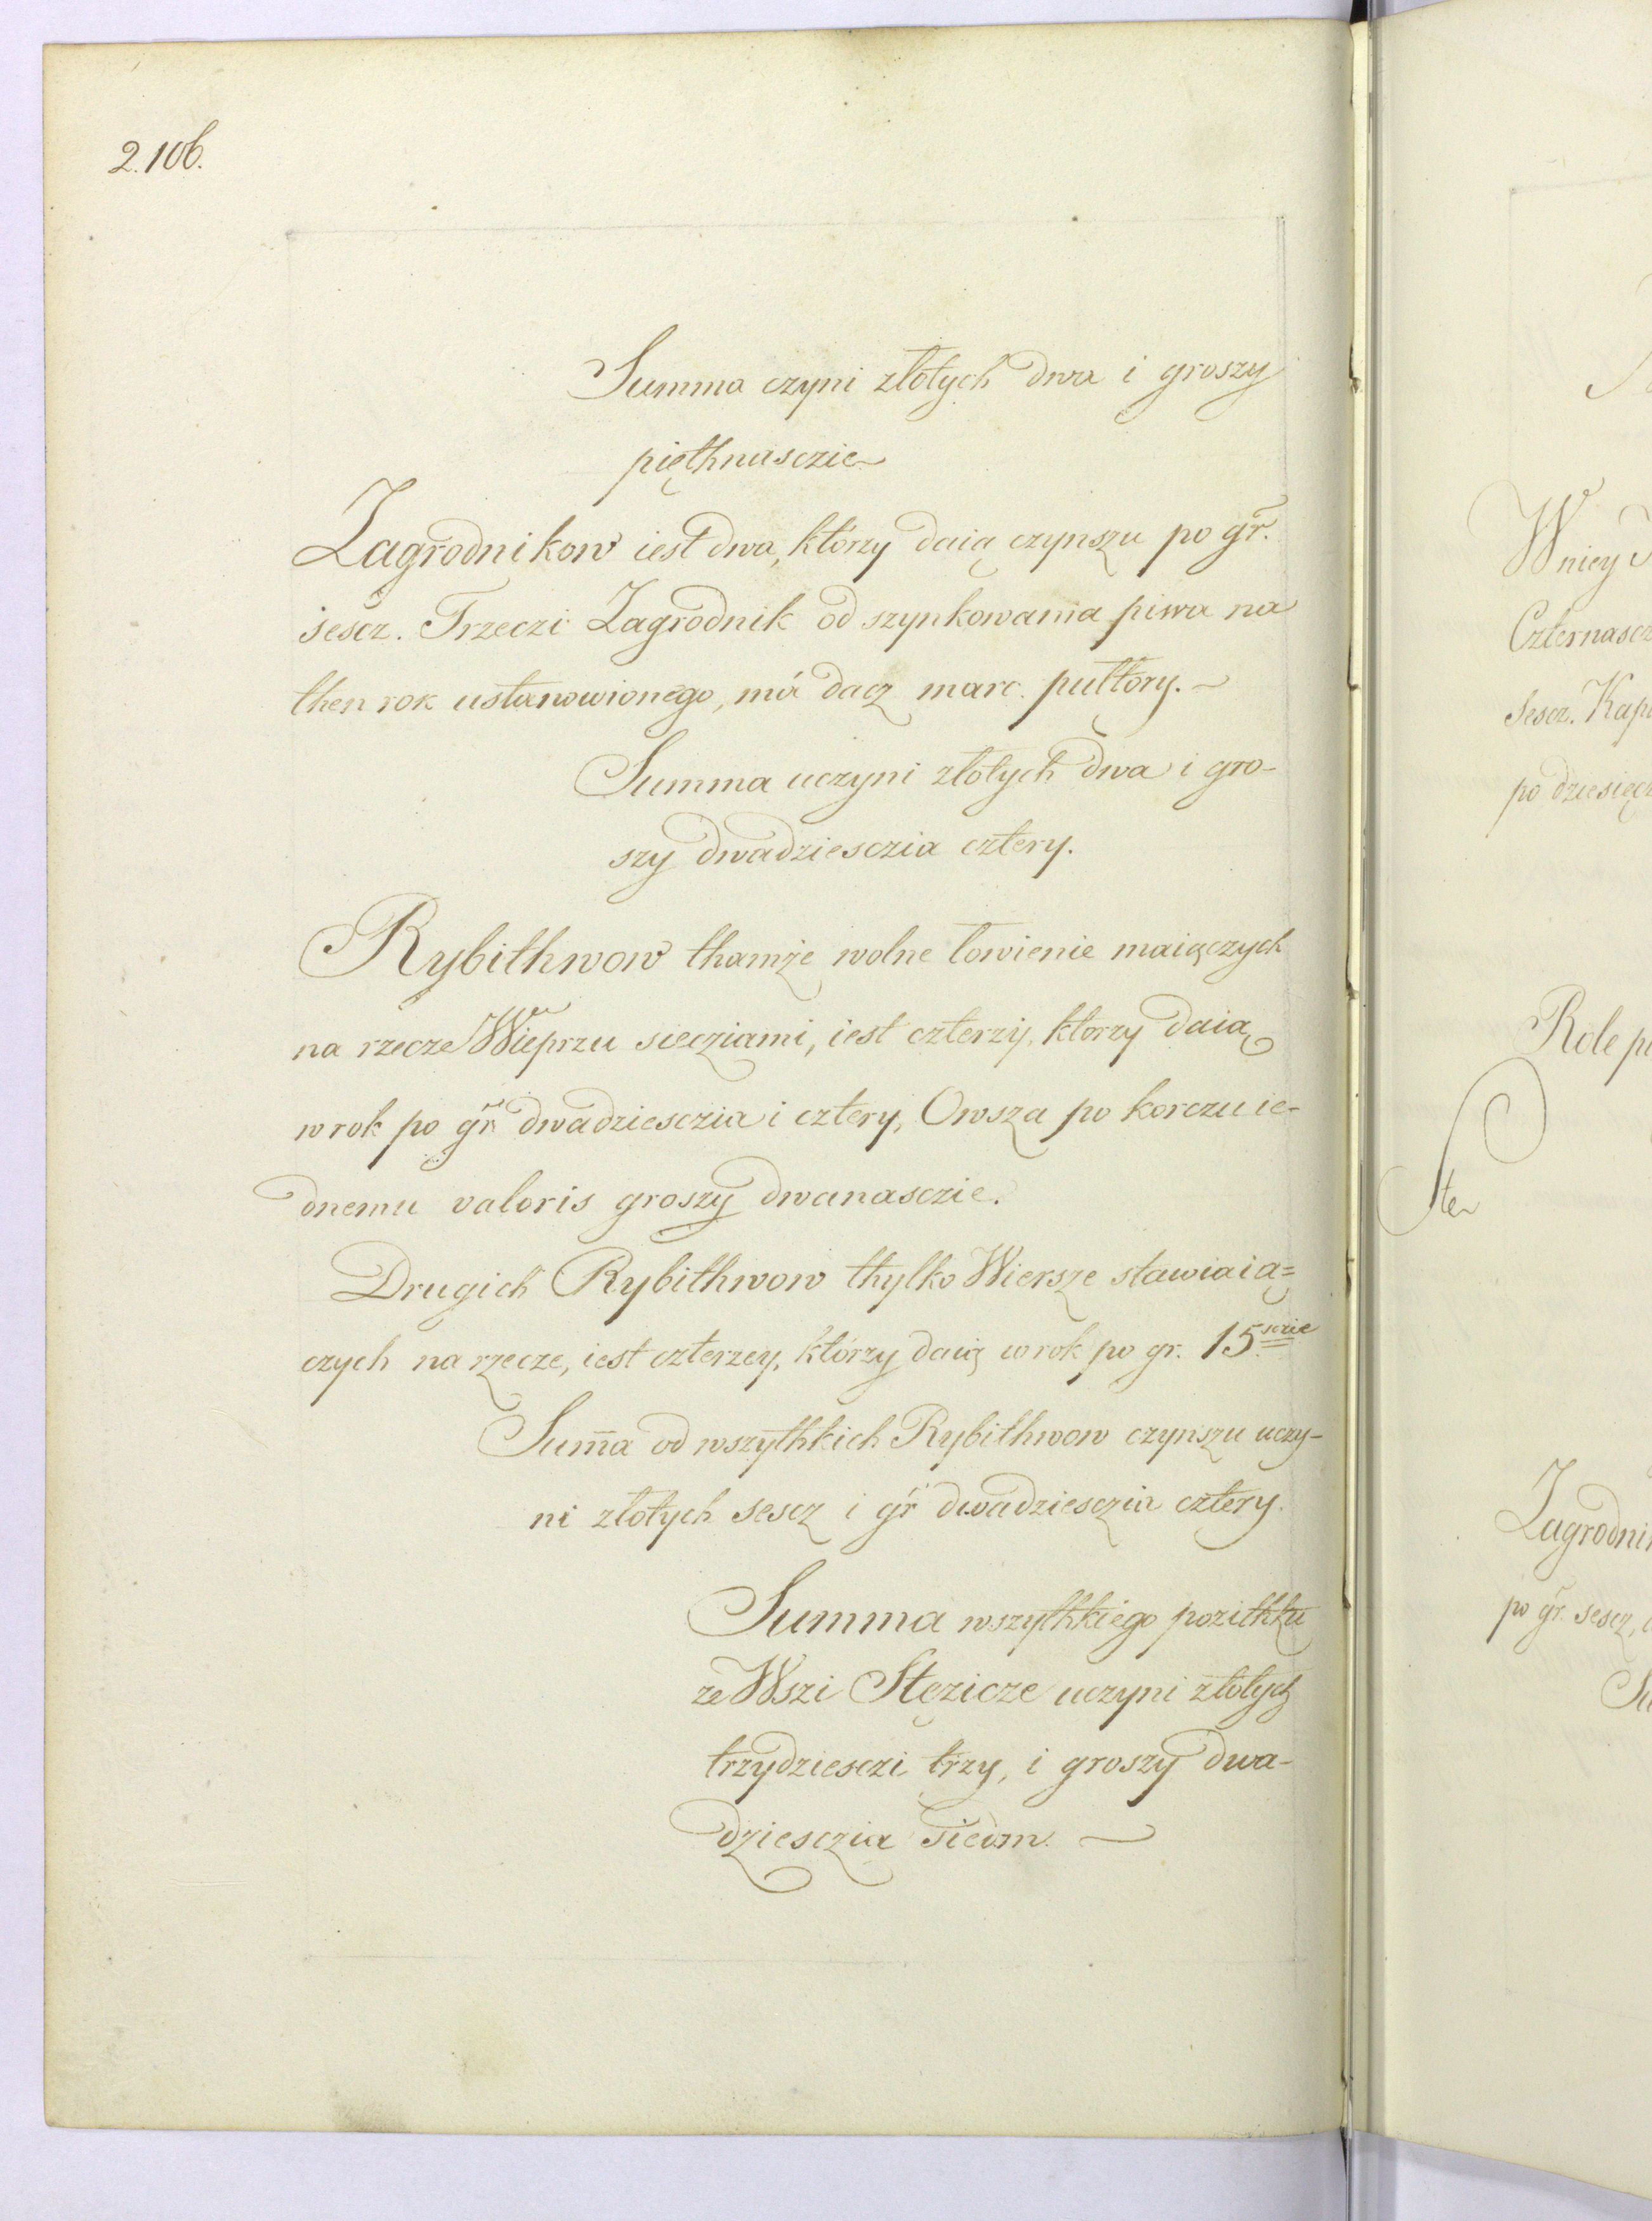 2.106.
Summa czyni złotych dwa i groszy
pięthnasczie
Zagrodnikow iest dwa, którzy daią czynszu po gr.
sescz. Trzeczi Zagrodnik od szynkowania piwa na
then rok ustanowionego, má dacz marc. pułtory.
Summa uczyni złotych dwa i gro-
szy dwadziesczia cztery.
Rybithwow thamże wolne łowienie maiączych
na rzecze Wieprzu siecziami, iest czterzy, ktorzy daią
w rok po gr. dwadziesczia i cztery, Owsza po korczu ie-
dnemu valoris groszy dwanasczie.
Drugich Rybithwow thylko Wiersze stawiaią=
czych na rzecze, iest czterzey, którzy daią w rok po gr. 15 sczie
Suma od wszythkich Rybithwow czynszu uczy-
ni złotych sescz i gr dwadziesczia cztery.
Summa wszythkiego pozithku
ze Wszi Stężicze uczyni złotych
trzydziesczi trzy, i groszy dwa-
dziesczia siedm.
W niey
Czternascz
sescz. Kap
po dziesięcz
Role p
Zagrodni
po gr. sescz,